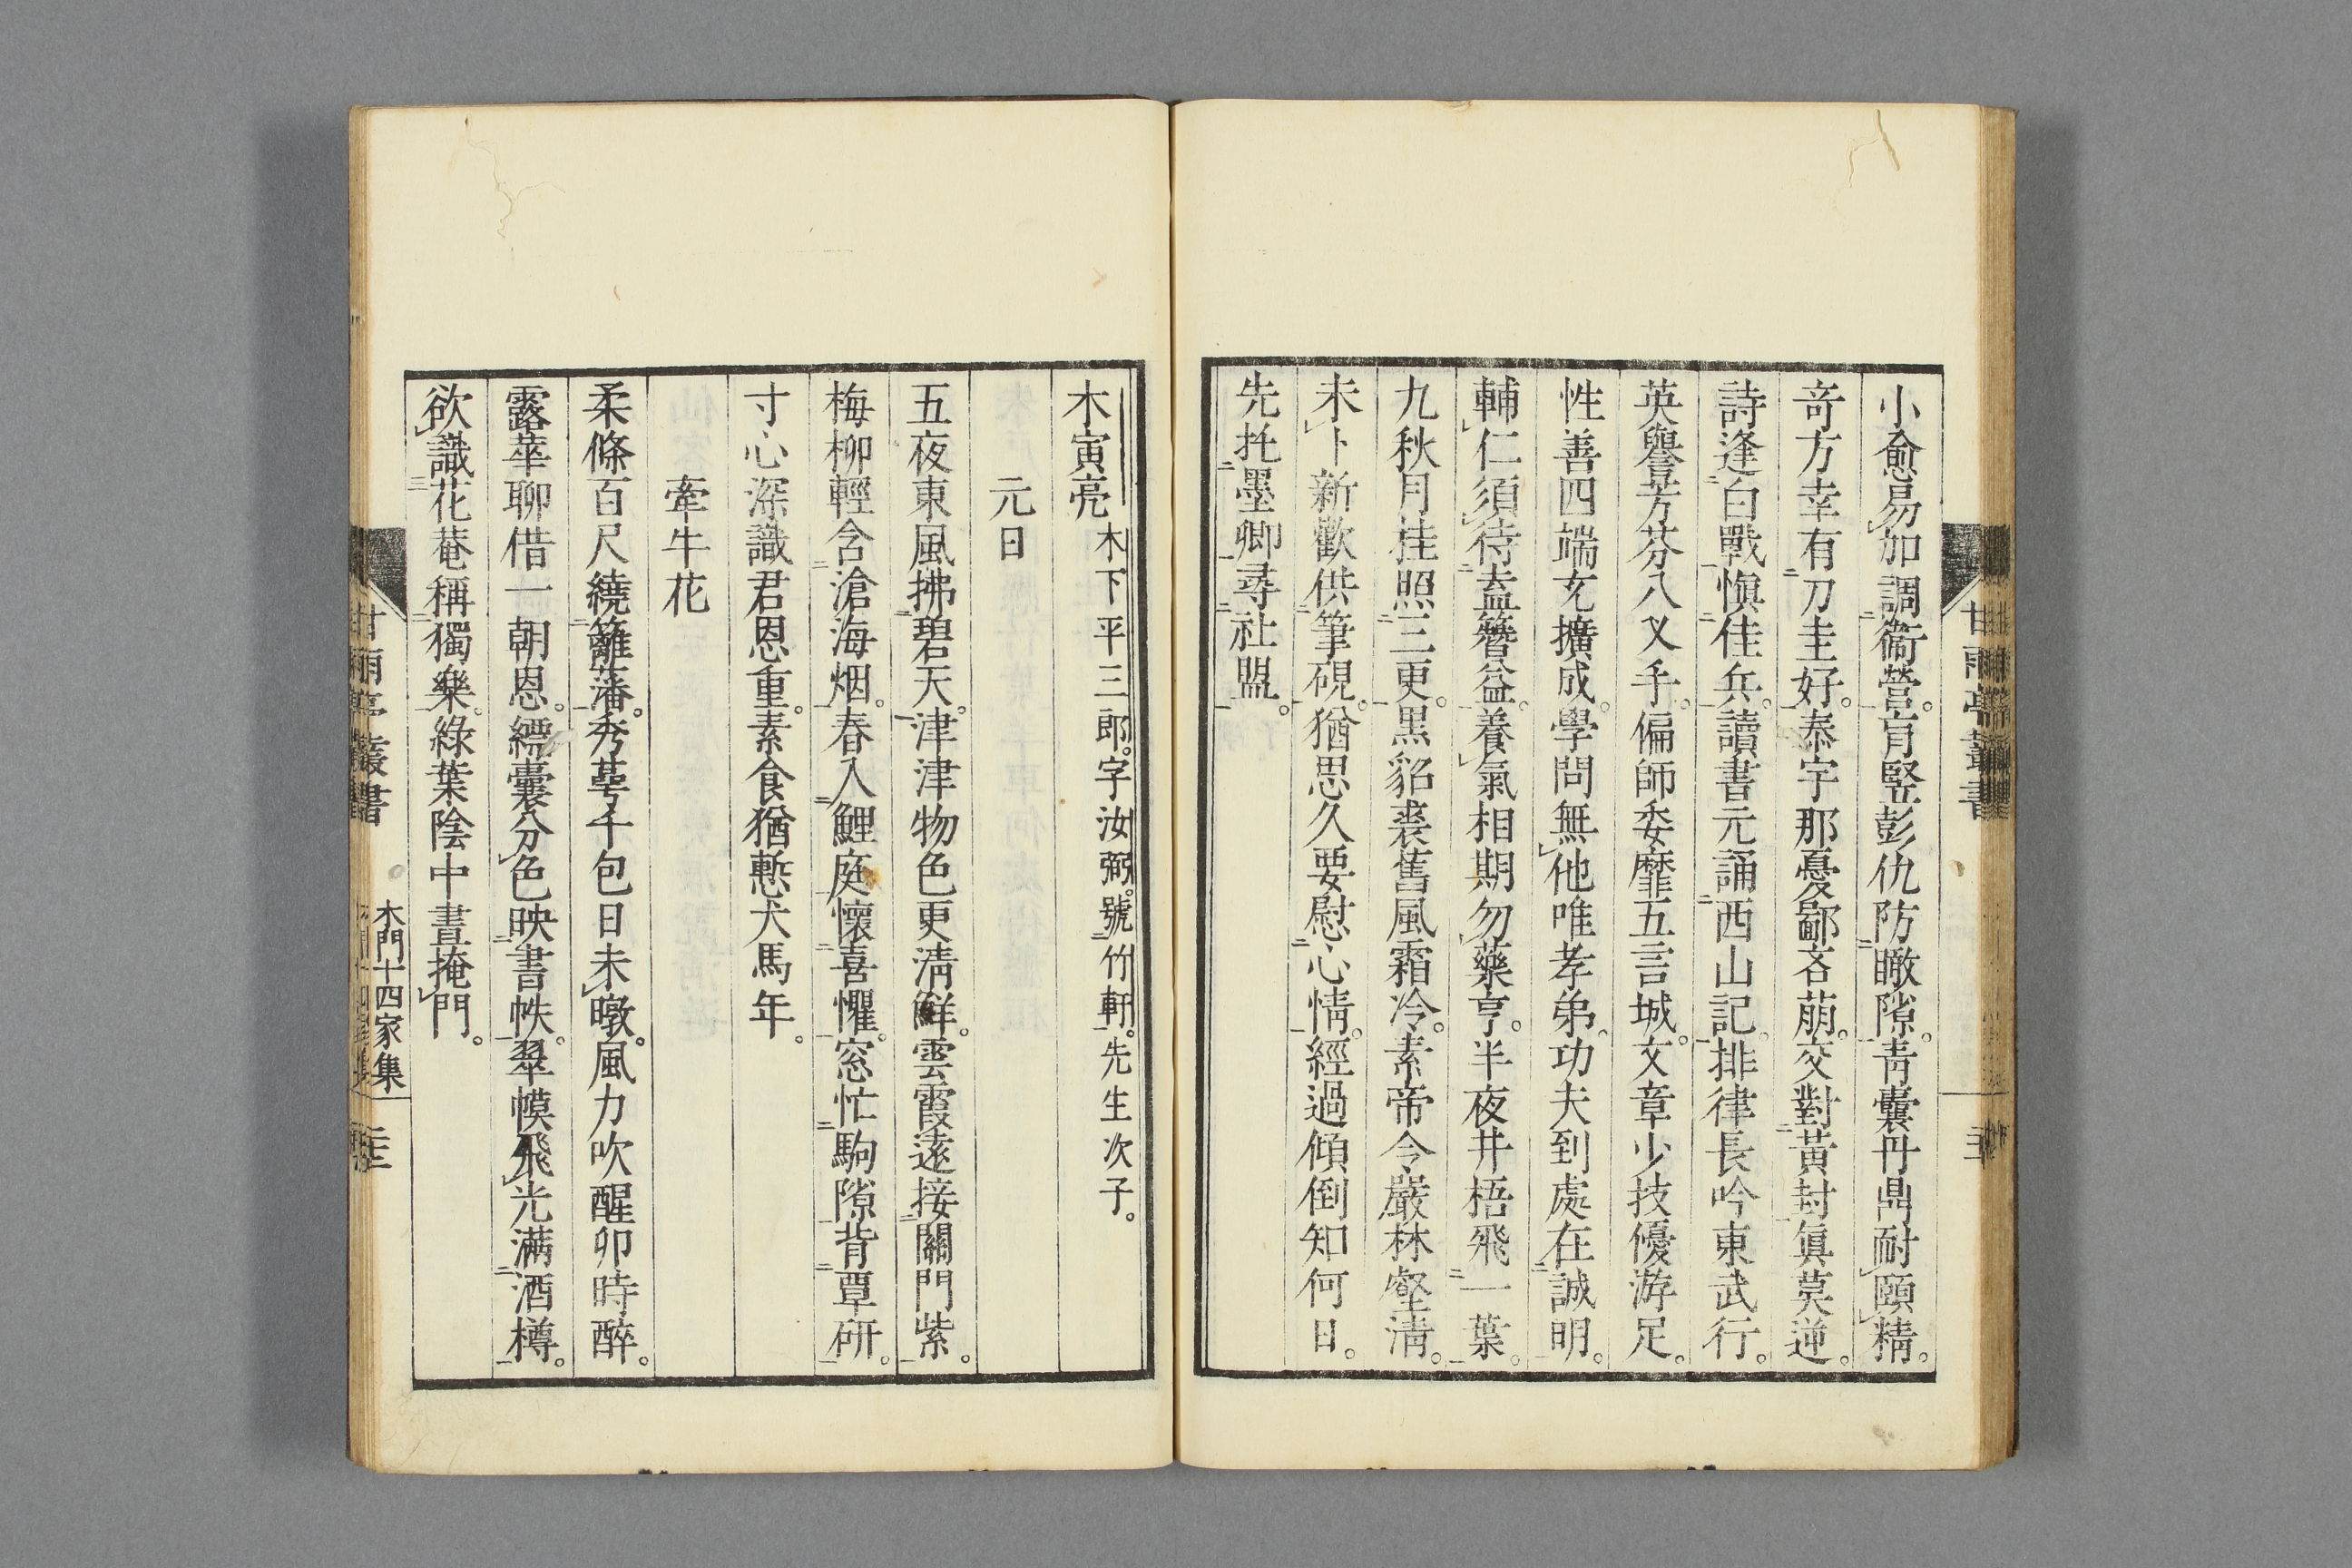 小愈易加調衞營肓竪彭仇防瞰隙靑囊丹鼎耐頤精
奇方幸有刀圭好泰宇那憂鄙吝萠交對黃封眞莫逆
詩逢白戰愼佳兵讀書元誦西山記排律長吟東武行
英譽芳芬八叉手偏師委靡五言城文章少技優游足
性善四端充擴成學問無他唯孝弟功夫到處在誠明
輔仁須待盍簪益養氣相期勿藥亨半夜井梧飛一葉
九秋月桂照三更黒貂裘舊風霜冷素帝令嚴林壑淸
未卜新歡供筆硯猶思久要慰心情經過傾倒知何日
先托墨卿尋社盟
木寅亮 木下平三郎。字汝弼。號竹軒。先生次子。
元日
五夜東風拂碧天津津物色更淸鮮雲霞遠接關門紫
梅柳輕含滄海烟春入鯉庭懷喜懼窓忙駒隙背覃研
寸心深識君恩重素食猶慙犬馬年
牽牛花
柔條百尺繞籬藩秀萼千包日未暾風力吹醒卯時醉
露華聊借一朝恩縹囊分色映書帙翠幙飛光滿酒樽
欲識花菴稱獨樂綠葉陰中晝掩門
甘雨亭叢書
木門十四家集